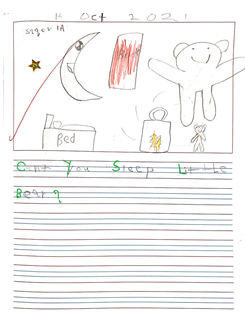 1 Oct 2021
Bed
Can you Sleep Little
Bear?